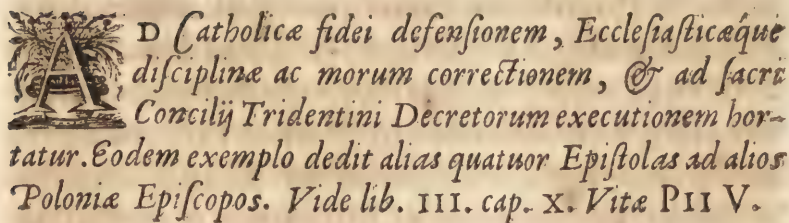 AD Catholicæ fidei defenſionem, Eccleſiaſticæq́ue
diſciplinæ ac morum correctionem, & ad ſacri
Concilij Tridentini Decretorum executionem hor-
tatur. Eodem exemplo dedit alias quatuor Epiſtolas ad alios
Poloniæ Epiſcopos. Vide lib. III. cap. X. Vitæ PII V.